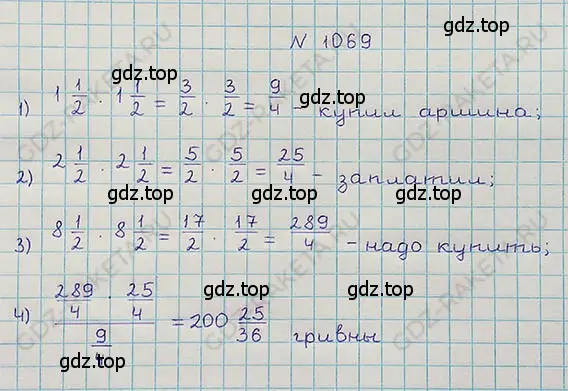 N 1069
1) 1 1/2 · 1 1/2 = 3/2 · 3/2 = 9/4 - купил аршина;
2) 2 1/2 · 2 1/2 = 5/2 · 5/2 = 25/4 - заплатил;
3) 8 1/2 · 8 1/2 = 17/2 · 17/2 = 289/4 - надо купить;
4) (289/4 · 25/4) / (9/4) = 200 25/36 гривны
gdz.top
gdz.top
gdz.top
gdz.top
gdz.top
gdz.top
gdz.top
gdz.top
gdz.top
GDZ-RAKETA.RU